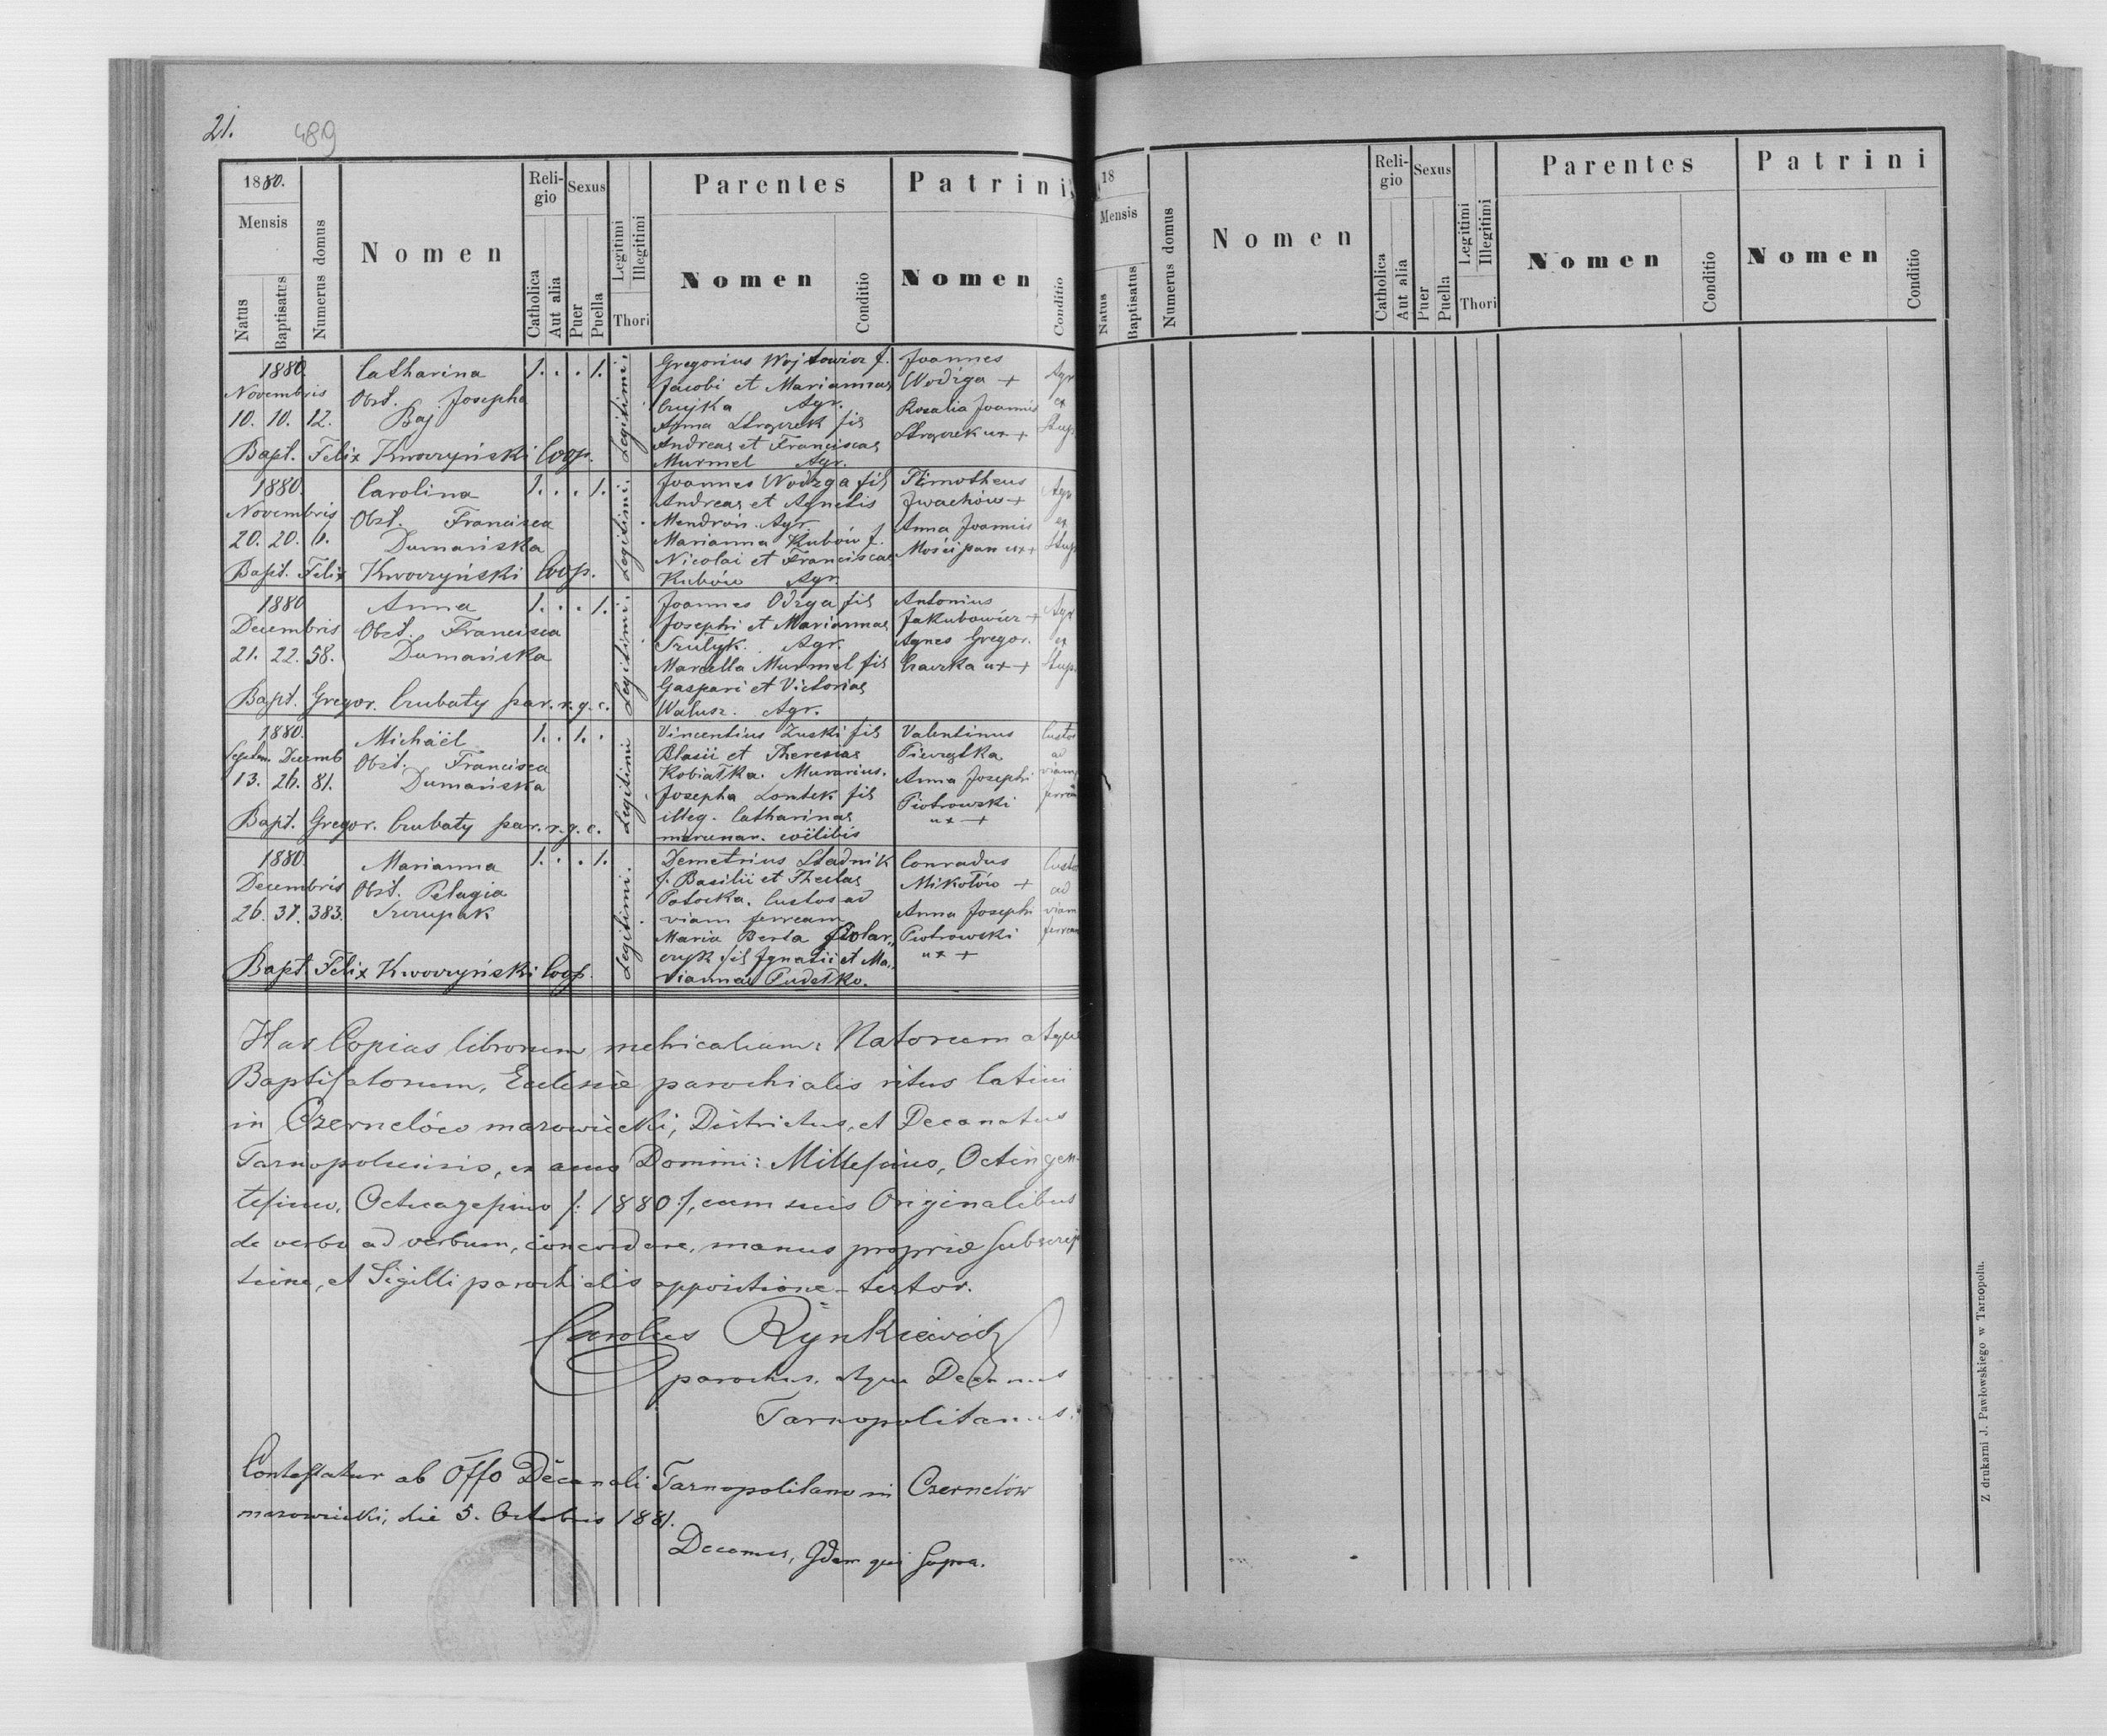 21. 489
1880.
Mensis
Natus
Baptisatus
Numerus domus
Nomen
Religio
Catholica
Aut alia
Sexus
Puer
Puella
Legitimi
Illegitimi
Thori
Parentes
Nomen
Conditio
Patrini
Nomen
Conditio
1880.
Novembris
10. 10. 12.
Catharina
Obst. Josepha
Baj
1. . . 1.
Legitimi.
Gregorius Wojtowicz f.
Jacobi et Mariannae
Czujka Agr.
Anna Strqczek fil
Andreae et Franciscae
Murmel Agr.
Joannes
Wodzga +
Rosalia Joannis
Strqczek ux +
Agr
et
Sup
Bapt. Felix Kwoczyński Coop.
1880.
Novembris
20. 20. 6.
Carolina
Obst. Francisca
Dumańska
1. . . 1.
Legitimi.
Joannes Wodzga fil
Andreae et Agnetis
Mendroń. Agr
Marianna Kubów f.
Nicolai et Franciscae
Kubów Agr.
Timotheus
Iwachów +
Anna Joannis
Mościpan ux +
Agr
et
Sup
Bapt. Felix Kwoczyński Coop.
1880
Decembris
21. 22. 58.
Anna
Obst. Francisca
Dumańska
1. . . 1.
Legitimi.
Joannes Odzga fil
Josephi et Mariannae
Agr.
Marcella Murmel fil
Gaspari et Victoriae
Walusz. Agr.
Antonius
Jakubowicz +
Agnes Gregor.
Czaczka ux +
Agr
et
Sup
Bapt. Gregor. Czubaty par. r. g. c.
1880.
Septem. Decemb
13. 26. 81.
Michaël
Obst. Francisca
Dumańska
1. . 1. .
Legitimi
Vincentius Zuski fil
Blasii et Theresiae
Kobiałka. Murarius.
Josepha Lontek fil
illeg. Catharinae
mercenar. coëlibis
Valentinus
Anna Josephi
Piotrowski
ux +
Custos
ad
viam
ferream
Bapt. Gregor. Czubaty par. r. g. c.
1880.
Decembris
26. 31. 383.
Marianna
Obst. Pelagia
Szczupak
1. . . 1.
Legitimi.
Demetrius Stadnik
f. Basilii et Theclae
Potocka. Custos ad
viam ferream
Maria Berta
czyk fil Ignatii et Ma„
riannae Pudełko.
Conradus
Mikołów +
Anna Josephi
Piotrowski
ux +
Custos
ad
viam
ferream
Bapt. Felix Kwoczyński Coop.
Has Copias librorum metricalium: Natorum atque
Baptisatorum, Ecclesiæ parochialis ritus latini
in Czernelów mazowiecki, Districtus, et Decanatus
Tarnopoliensis, ex anno Domini: Millesimo, Octingen-
tesimo, Octuagesimo /: 1880 :/, cum suis Originalibus
de verbo ad verbum, concordare, manus propriæ subscrip
tione, et Sigilli parochialis appositione – testor.
Carolus Rynkiewicz
parochus, atque Decanus
Tarnopolitanus.
Contestatur ab Offo Decanali Tarnopolitano in Czernelów
mazowiecki, die 5. Octobris 1881.
Decanus, Idem qui Supra.
18
Mensis
Natus
Baptisatus
Numerus domus
Nomen
Religio
Catholica
Aut alia
Sexus
Puer
Puella
Legitimi
Illegitimi
Thori
Parentes
Nomen
Conditio
Patrini
Nomen
Conditio
Z drukarni J. Pawłowskiego w Tarnopolu.